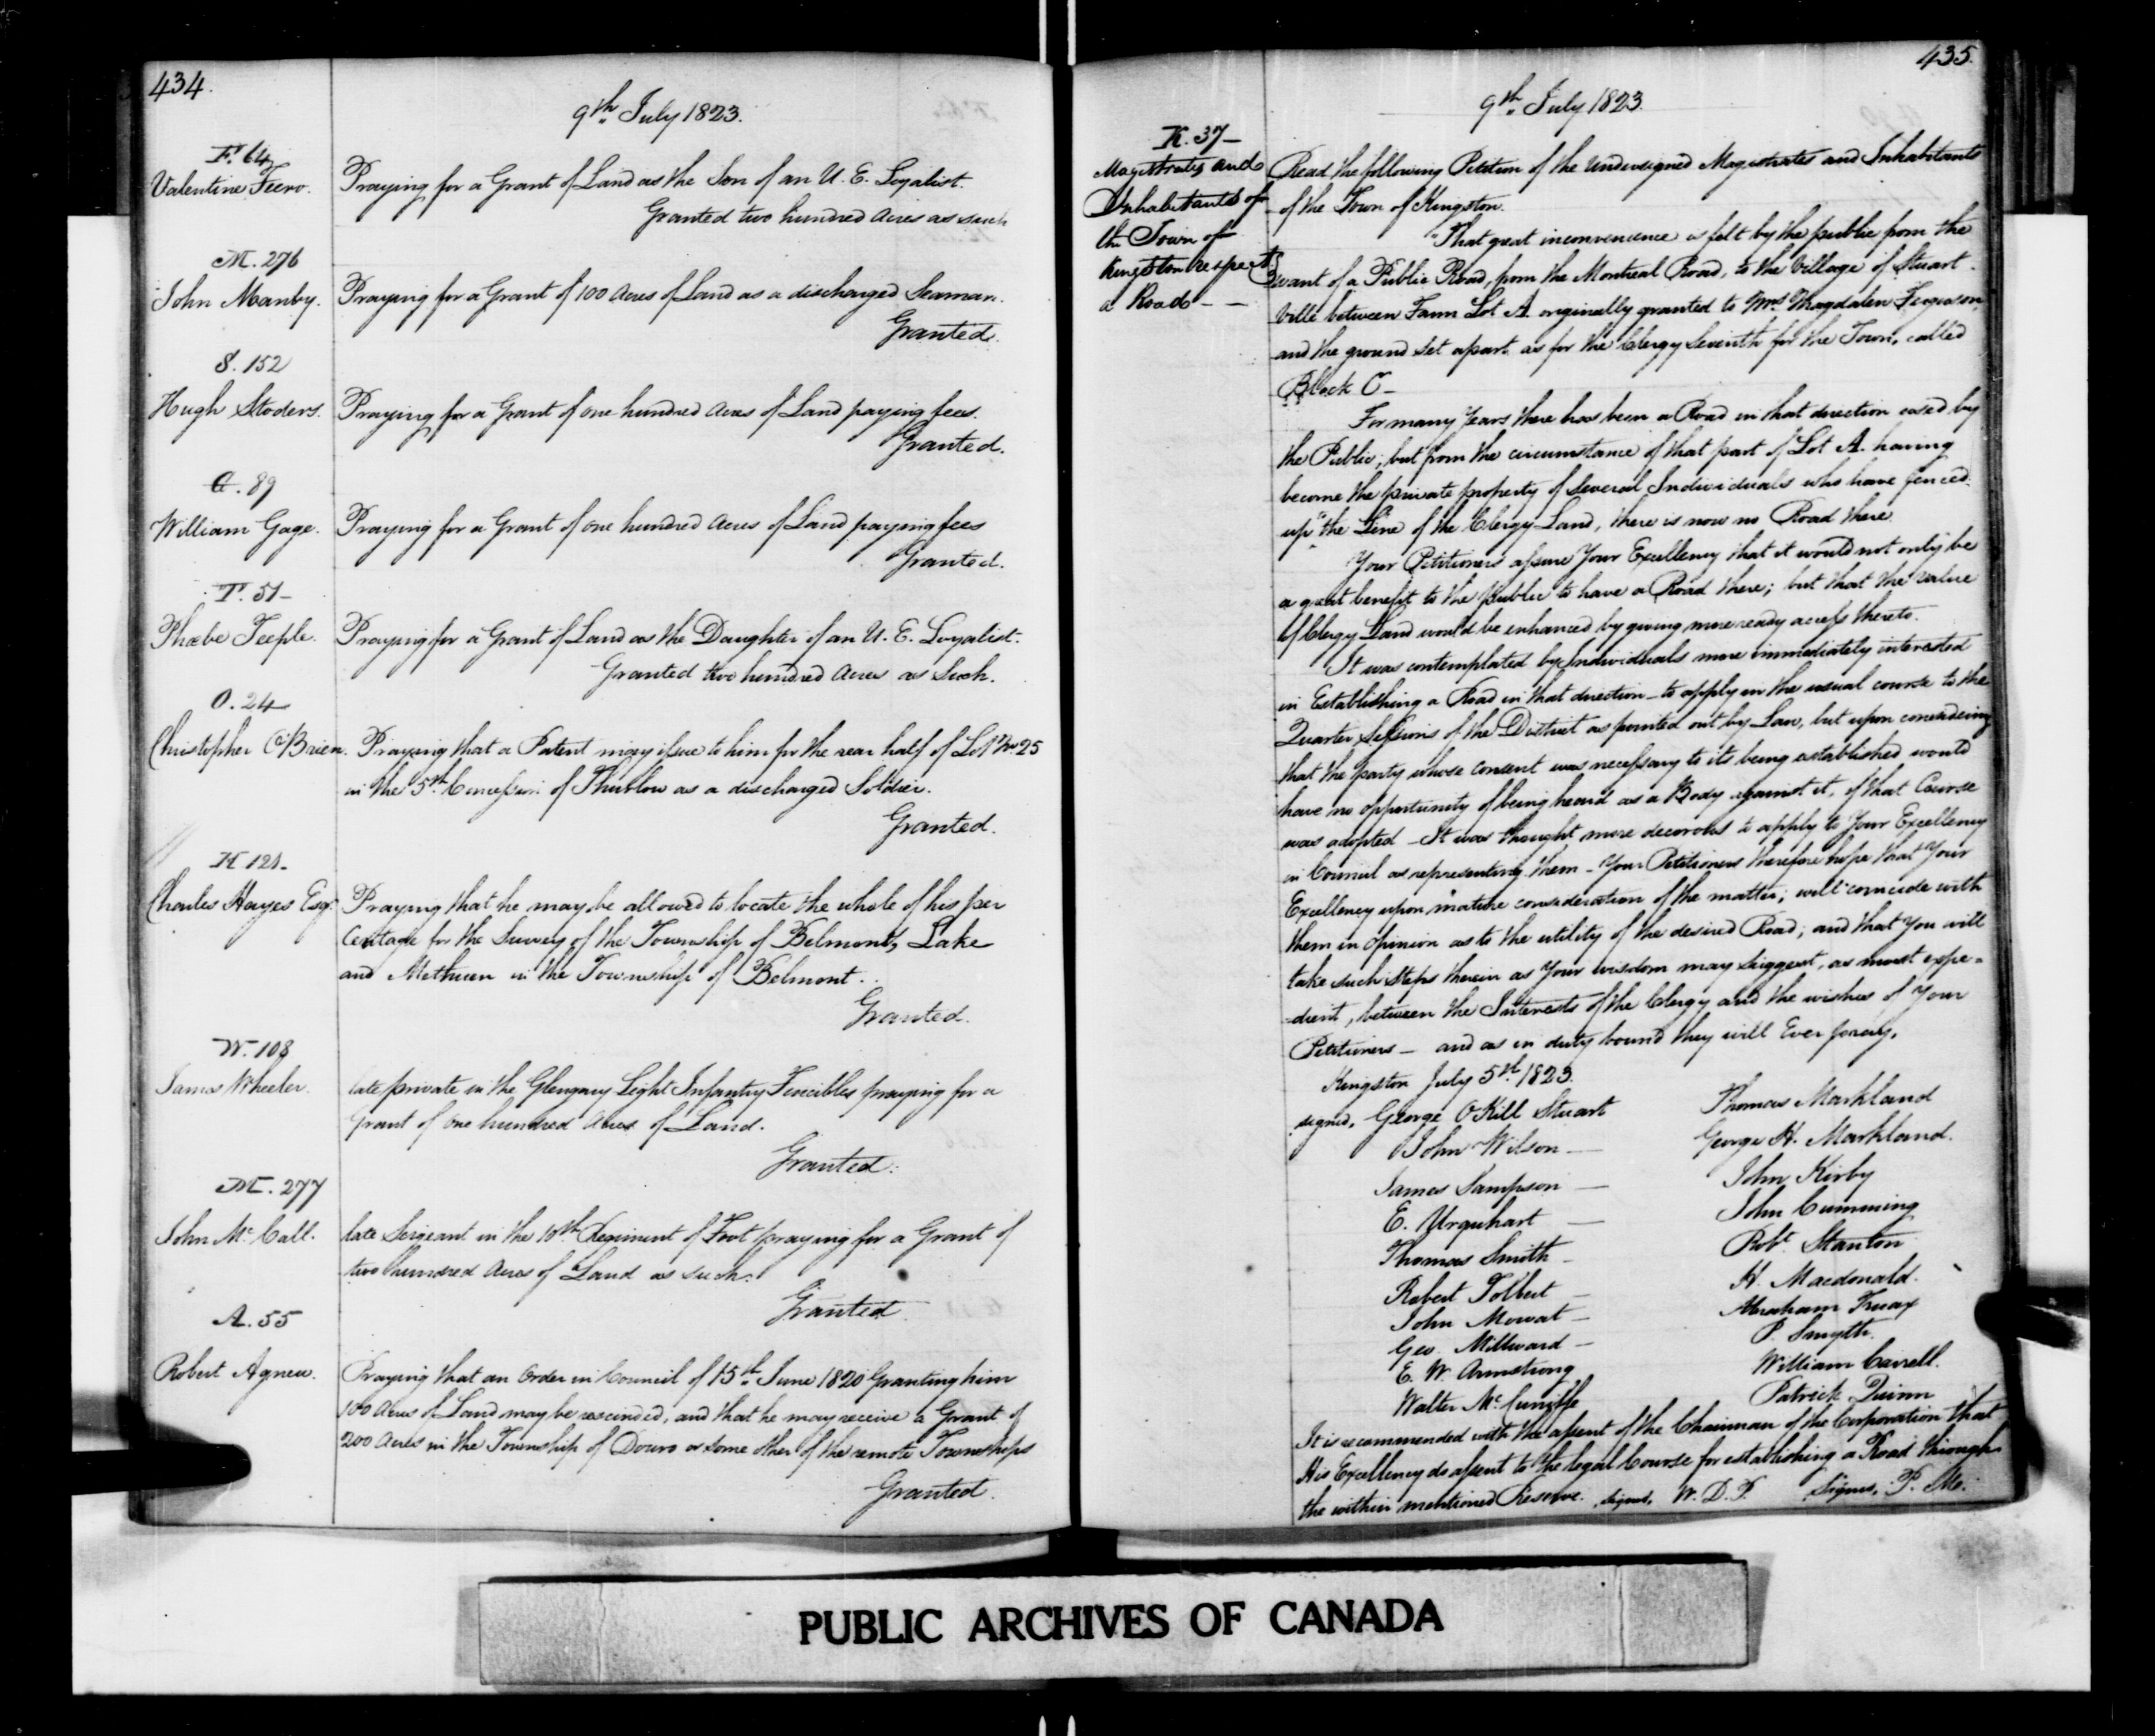 434.
9th July 1823.
F. 64
Valentine Feero. Praying for a Grant of Land as the Son of an U. E. Loyalist.
Granted two hundred Acres as such
M. 276
John Manby. Praying for a Grant of 100 Acres of Land as a discharged Seaman.
Granted.
S. 152
Hugh Stoders. Praying for a Grant of one hundred Acres of Land paying fees.
Granted.
G. 89
William Gage. Praying for a Grant of one hundred Acres of Land paying fees
Granted.
T. 51-
Phœbe Teeple. Praying for a Grant of Land as the Daughter of an U. E. Loyalist.
Granted two hundred Acres as Such.
O. 24
Christopher O'Brien. Praying that a Patent may issue to him for the rear half of Lot No 25
in the 5th Concession of Thurlow as a discharged Soldier.
Granted.
H 121-
Charles Hayes Esqr. Praying that he may be allowed to locate the whole of his per
Centage for the Survey of the Township of Belmont, Lake
and Methuen in the Township of Belmont.
Granted.
W. 108
James Wheeler. late private in the Glengary Light Infantry Fencibles praying for a
Grant of one hundred Acres of Land.
Granted.
M. 277
John Mc Call. late Sergeant in the 10th Regiment of Foot praying for a Grant of
two hundred Acres of Land as such.
Granted
A. 55
Robert Agnew. Praying that an Order in Council of 15th June 1820 Granting him
100 Acres of Land may be rescinded, and that he may receive a Grant of
200 Acres in the Township of Douro or some other of the remote Townships
Granted.
435.
9th July 1823.
K. 37-
Magistrates and
Inhabitants of
the Town of
Kingston respectg
a Road - -
Read the following Petition of the Undersigned Magistrates and Inhabitants
of the Town of Kingston.
"That great inconvenience is felt by the public from the
want of a Public Road, from the Montreal Road, to the Village of Stuart-
Ville between Farm Lot A originally granted to Mrs Magdalen Ferguson,
and the ground set apart as for the Clergy Seventh for the Town, called
Block C-
For many Years there has been a Road in that direction used by
the Public; but from the circumstance of that part of Lot A. having
become the private property of Several Individuals who have fenced
up to the Line of the Clergy Land, there is now no Road there.
Your Petitioners assure Your Excellency that it would not only be
a great benefit to the Public to have a Road there; but that the value
of Clergy Land would be enhanced by giving more ready access thereto.
It was contemplated by Individuals more immediately interested
in Establishing a Road in that direction - to apply in the usual course to the
Quarter Sessions of the District as pointed out by Law, but upon considering
that the party whose consent was necessary to its being established would
have no opportunity of being heard as a Body against it, if that Course
was adopted - It was thought more decorous to apply to Your Excellency
in Council as representing them - Your Petitioners therefore hope that Your
Excellency upon mature consideration of the matter; will coincide with
them in opinion as to the utility of the desired Road; and that You will
take such Steps therein as Your wisdom may suggest, as most expe-
-dient, between the Interests of the Clergy and the wishes of Your
Petitioners - and as in duty bound they will Ever pray.
Kingston July 5th 1823.
signed, George O'Kill Stuart Thomas Markland
John Wilson - George H. Markland.
James Sampson - John Kirby
E. Urquhart - John Cumming
Thomas Smith - Robt Stanton
Robert Tolbert - H. Macdonald.
John Mowat - Abraham Truax
Geo. Millward - P. Smyth.
E. W. Armstrong William Carrell.
Walter Mc Cuniffe Patrick Quinn
It is recommended with the assent of the Chairman of the Corporation that
His Excellency do assent to the legal Course for establishing a Road through
the within mentioned Reserve. signed, W. D. P. Signed, P. M.
PUBLIC ARCHIVES OF CANADA